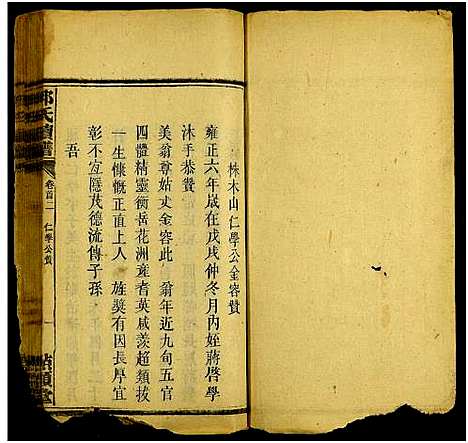 株木山仁學公金容贊
雍正六年歲在戊戌仲冬月內姪蔣啓學
沐手恭贊
美翁尊姑丈金容此　翁年近九旬五官
四體精靈衡岳花洲竟者英咸羨超類拔
一生慷慨正直上人　旌奬有因長厚宜
彰不宜隱茂德流傳子孫
吾
氏續譜
卷首二
仁學公贊
一